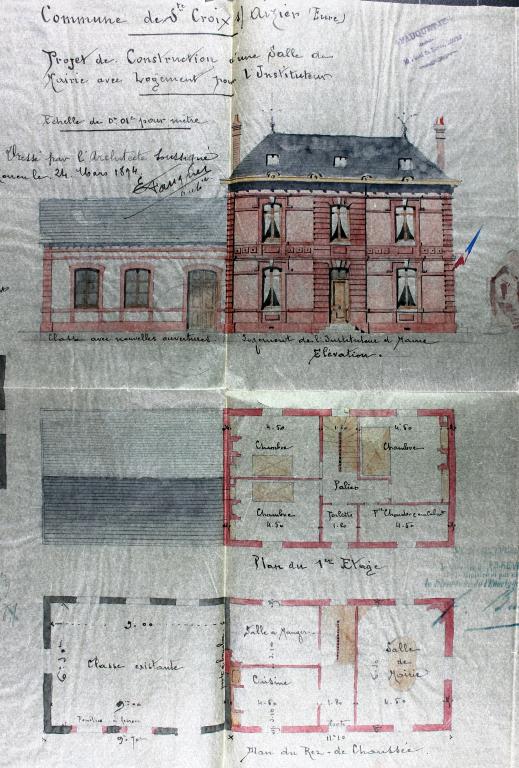 Commune de Ste Croix s/ Aizier (Eure)
Projet de Construction d'une Salle de
Mairie avec Logement pour l'Instituteur
Echelle de 0m01c pour mètre
Dressé par l'Architecte Soussigné
le 24 Mars 1894
Classe avec nouvelles ouvertures.
Logement de l'Instituteur et Mairie
Elévation.
4.50
1.80
4.50
Chambre
Chambre
Palier
Chambre
4.50
Toilette
1.80
4.50
Plan du 1er Etage
9.00
Classe existante
9.00
9.70
Salle à Manger
Cuisine
4.50
1.80
Salle
de
Mairie
4.50
11.10
Plan du Rez-de-Chaussée.